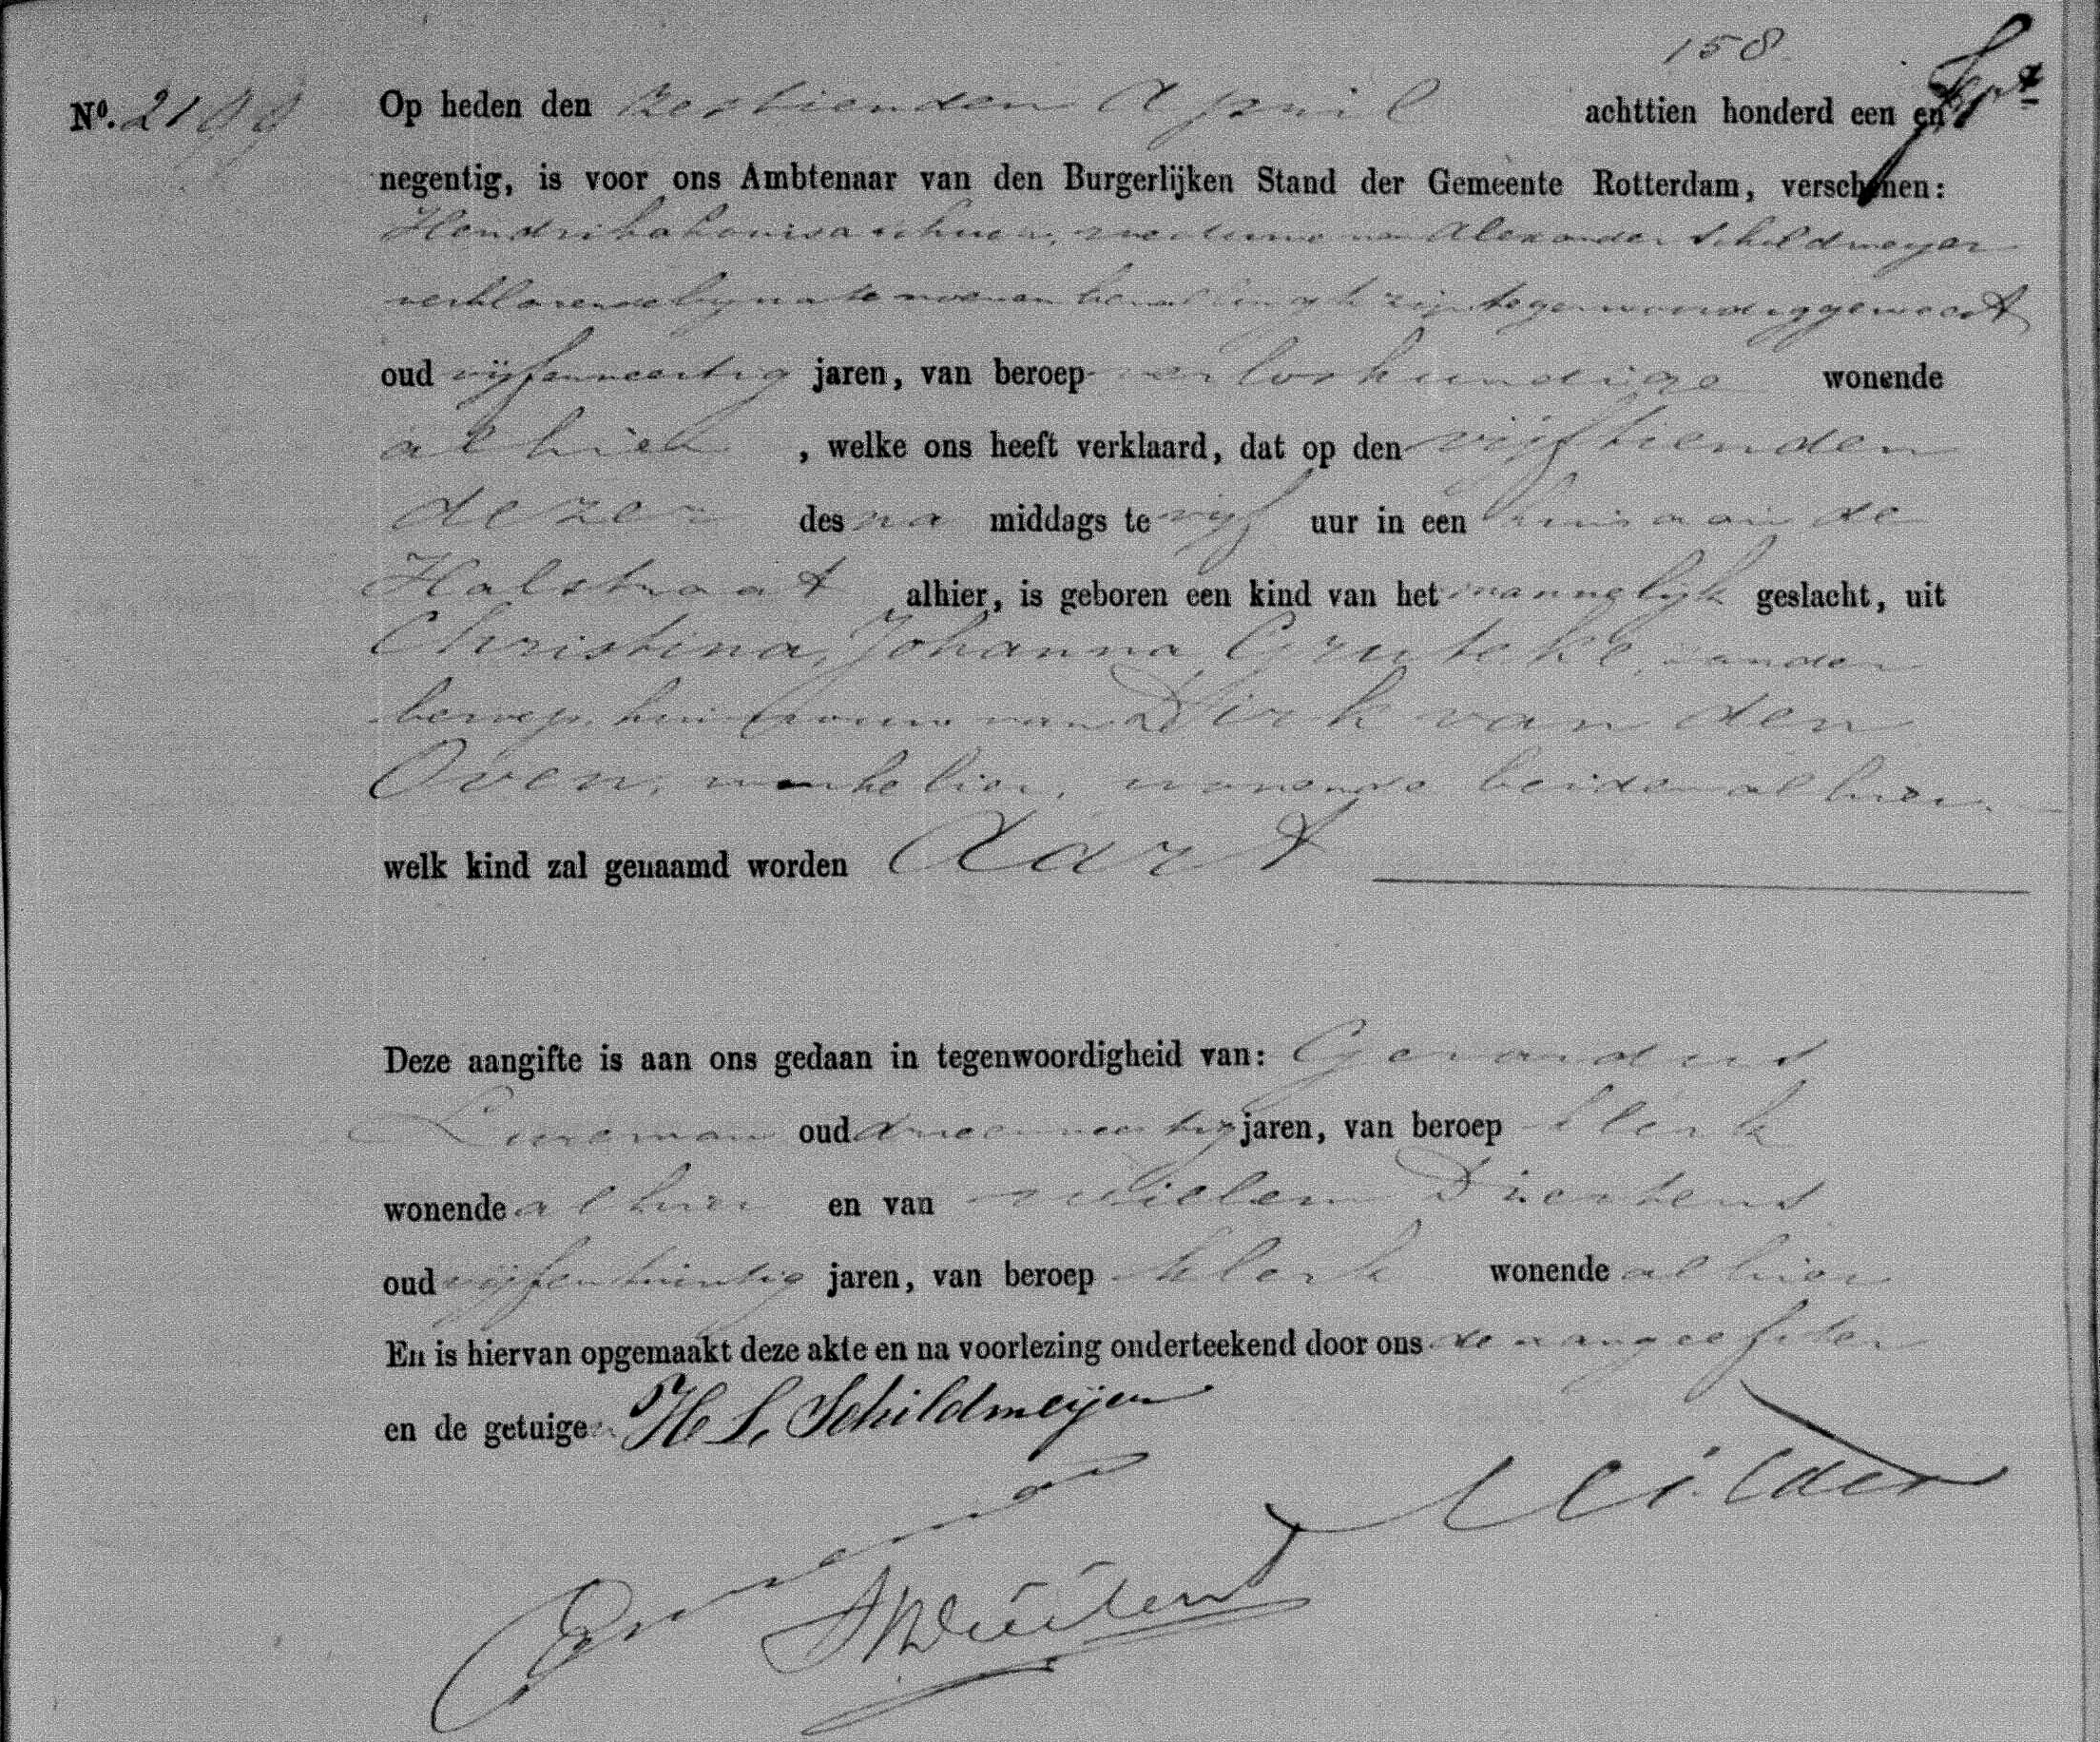 158
No. 2199 Op heden den zestienden April achttien honderd een en
negentig, is voor ons Ambtenaar van den Burgerlijken Stand der Gemeente Rotterdam, verschenen:
Hendrika Louisa weduwe van Alexander Schildmeijer
verklarende bij na te noemen bevalling te zijn tegenwoordig geweest
oud vijfenveertig jaren, van beroep verloskundige wonende
alhier, welke ons heeft verklaard, dat op den vijftienden
dezer des na middags te vijf uur in een huis aan de
Halstraat alhier, is geboren een kind van het mannelijk geslacht, uit
Christina, Johanna zonder
beroep, huisvrouw van Dirk van den
Oven, wonende beiden alhier
welk kind zal genaamd worden Aart
Deze aangifte is aan ons gedaan in tegenwoordigheid van: Gerardus
oud drieenveertig jaren, van beroep klerk
wonende alhier en van Willem
oud vijfentwintig jaren, van beroep klerk wonende alhier
En is hiervan opgemaakt deze akte en na voorlezing onderteekend door ons de aangeefster
en de getuigen. H L. Schildmeijer